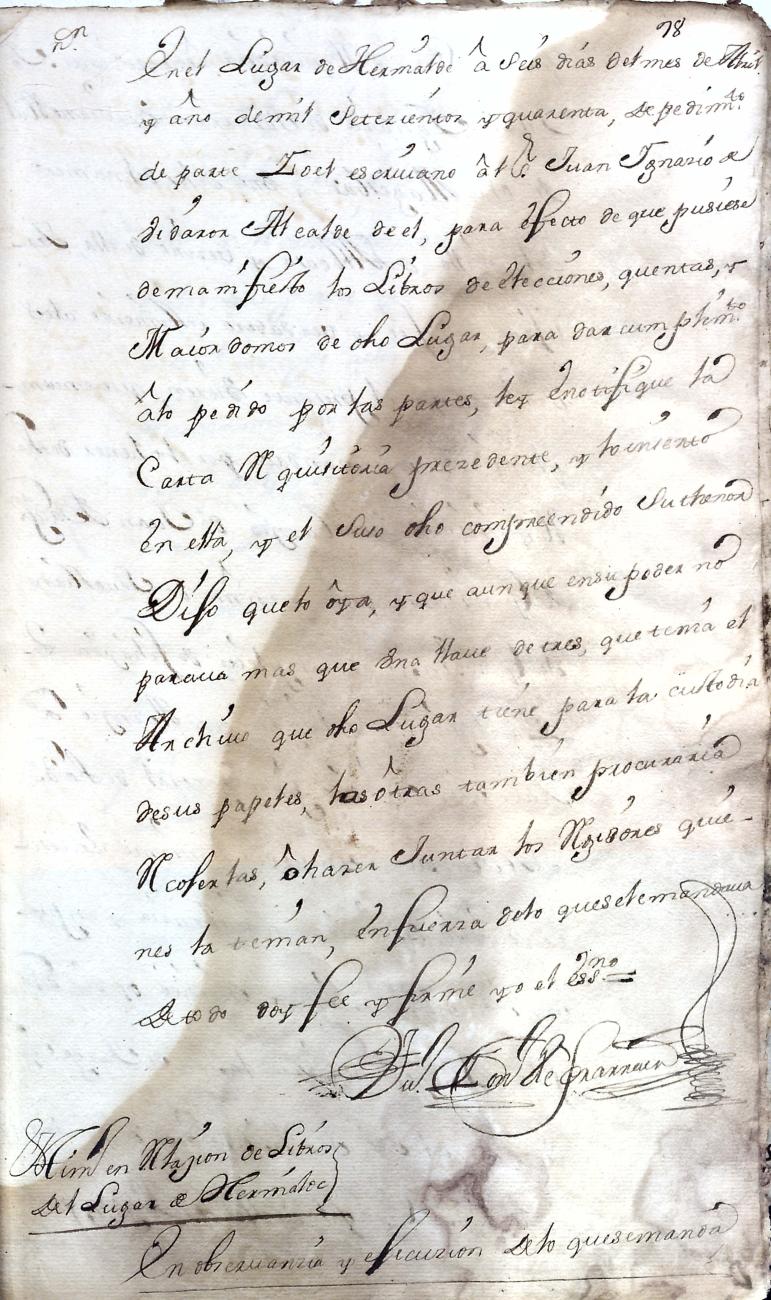 78
En el Lugar de Hermalde â seis dias del mes de Abril
y año de mil Setezientos y quarenta, de pedimto
de parte Io el escriuano â Juan Ignazio de
didaron Alcalde de el, para êfecto de que pusiese
de manifiesto los Libros de êlecciones, quentas, y
Maiordomos de dho Lugar, para dar cumplimto
âlo pedido por las partes, ley ênotifique la
Carta Rquisitoria prezedente, y lo inserto
en ella, y el suso dho compreendido su thenor
Dijo que lo ôya, y que aunque en su poder no
paraua mas que vna llaue de tres, que tenia el
Archiuo que dho Lugar tiene para la custodia
de sus papeles, las ôtras tambien procuraria
Rcojerlas, ô hazer Juntar los Rgidores quie-
nes la tenian, en fuerza de lo que se le mandaua
de todo doy fee y firme yo el essno =
en Rlazion de Libros
del Lugar de Hermalde
En obseruanzia y ejecuzion de lo que se manda